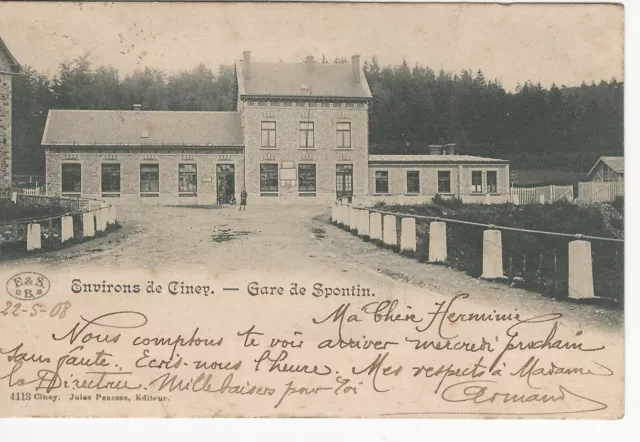 Environs de Ciney. — Gare de Spontin.
E&S
B
22-5-08
Ma Chère Hermine
Nous comptons te voir arriver mercredi prochain
sans faute. Ecris-nous l'heure. Mes respects à Madame
la Directrice Mille baisers pour toi
Armand
4113 Ciney. Jules Pesesse, Editeur.